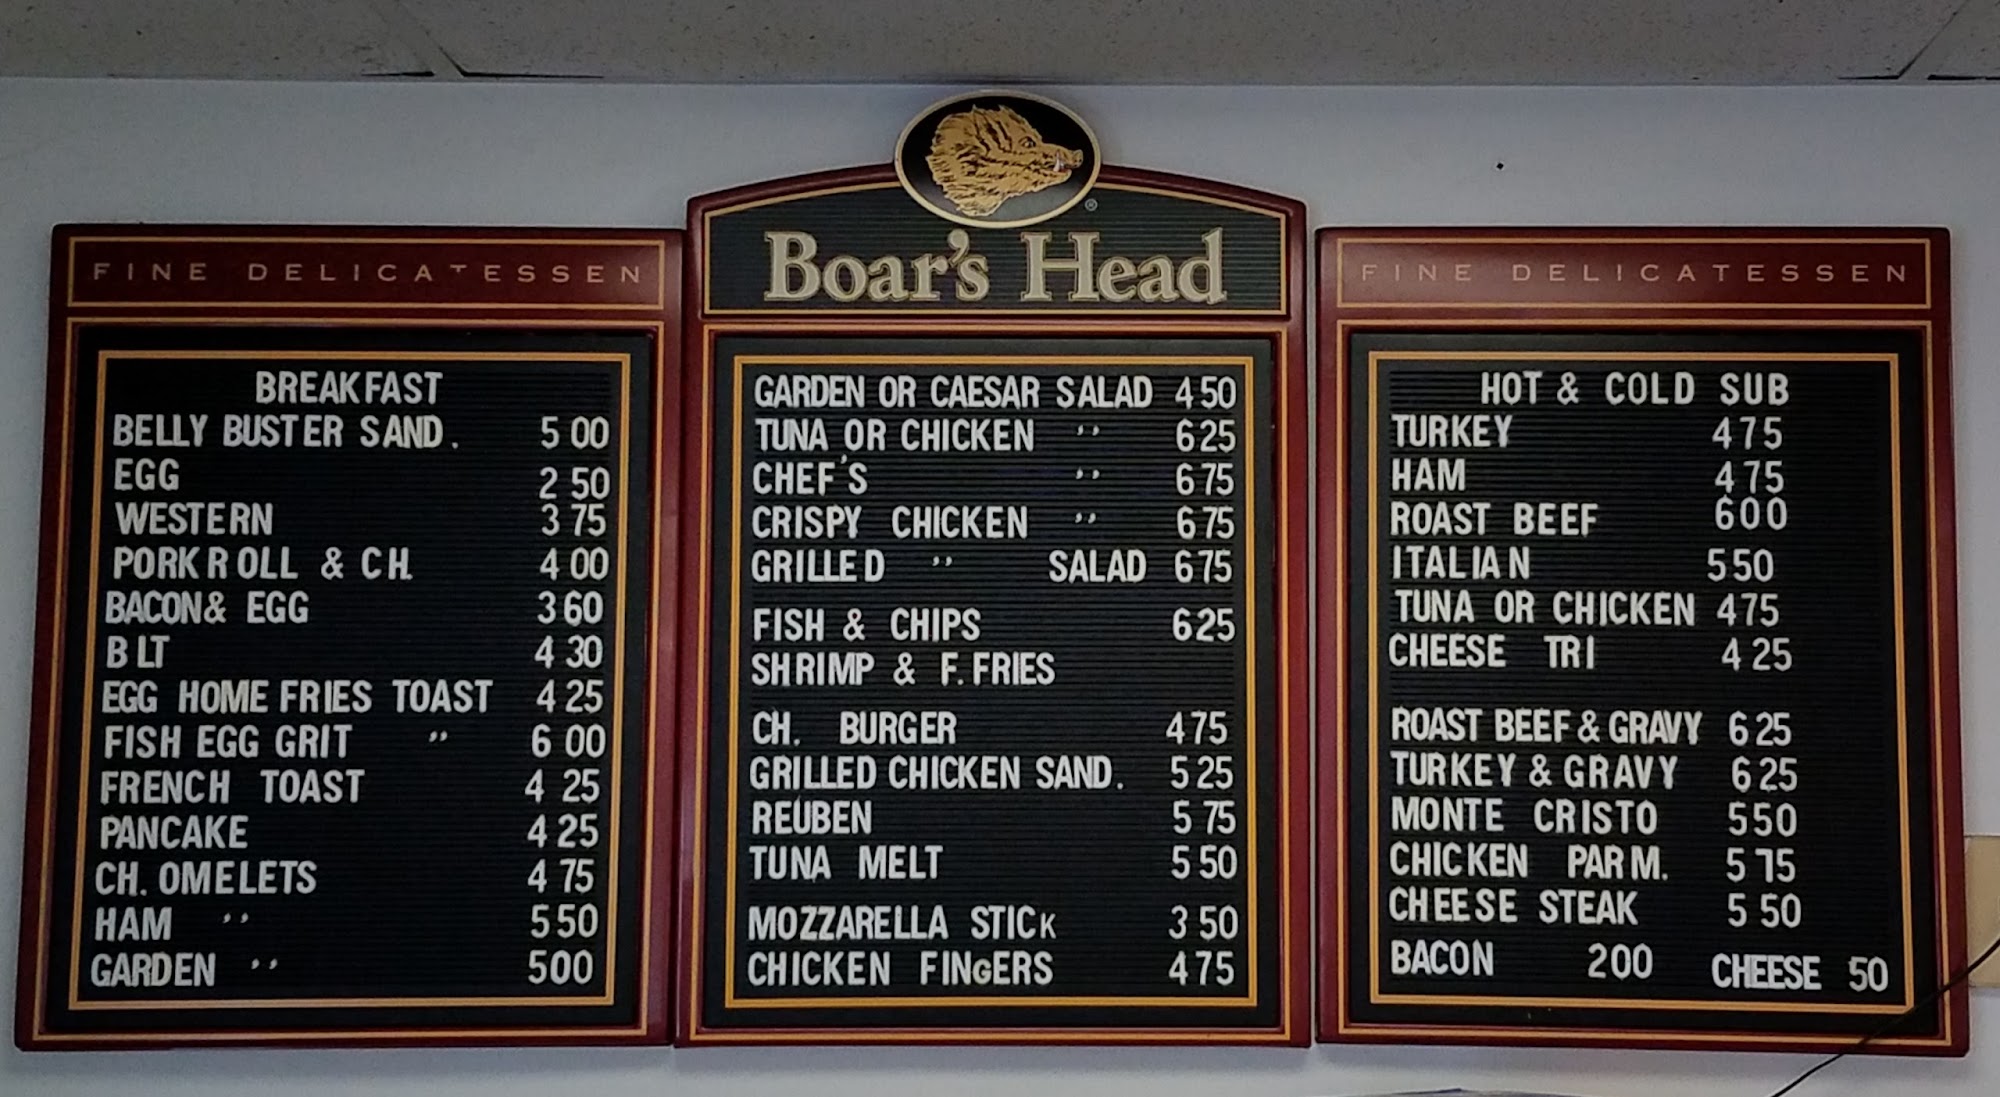 FINE DELICATESSEN
BREAKFAST
BELLY BUSTER SAND. 5 00
EGG 2 50
WESTERN 3 75
PORK ROLL & CH. 4 00
BACON & EGG 3 60
BLT 4 30
EGG HOME FRIES TOAST 4 25
FISH EGG GRIT " 6 00
FRENCH TOAST 4 25
PANCAKE 4 25
CH. OMELETS 4 75
HAM " 5 50
GARDEN " 5 00
Boar's Head ®
GARDEN OR CAESAR SALAD 4 50
TUNA OR CHICKEN " 6 25
CHEF'S " 6 75
CRISPY CHICKEN " 6 75
GRILLED " SALAD 6 75
FISH & CHIPS 6 25
SHRIMP & F. FRIES
CH. BURGER 4 75
GRILLED CHICKEN SAND. 5 25
REUBEN 5 75
TUNA MELT 5 50
MOZZARELLA STICK 3 50
CHICKEN FINGERS 4 75
FINE DELICATESSEN
HOT & COLD SUB
TURKEY 4 75
HAM 4 75
ROAST BEEF 6 00
ITALIAN 5 50
TUNA OR CHICKEN 4 75
CHEESE TRI 4 25
ROAST BEEF & GRAVY 6 25
TURKEY & GRAVY 6 25
MONTE CRISTO 5 50
CHICKEN PARM. 5 75
CHEESE STEAK 5 50
BACON 2 00 CHEESE 50